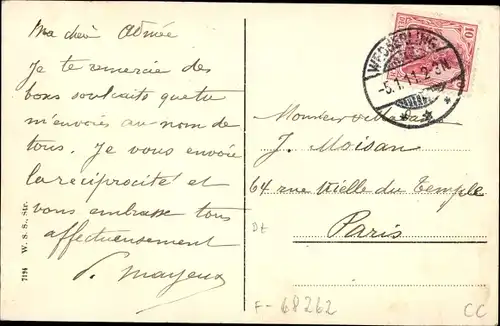 Ma chère Aimée
Je te remercie des
bons souhaits que tu
m'envoies au nom de
tous. Je vous envoie
la réciprocité et
vous embrasse tous
affectueusement
P. Mayeux
7194 W. S. S., Str.
10
WESSERLING
-5.1.11.2-3N.
Monsieur
J. Moisan
64 rue Vielle du Temple
Paris
F-68262
CC